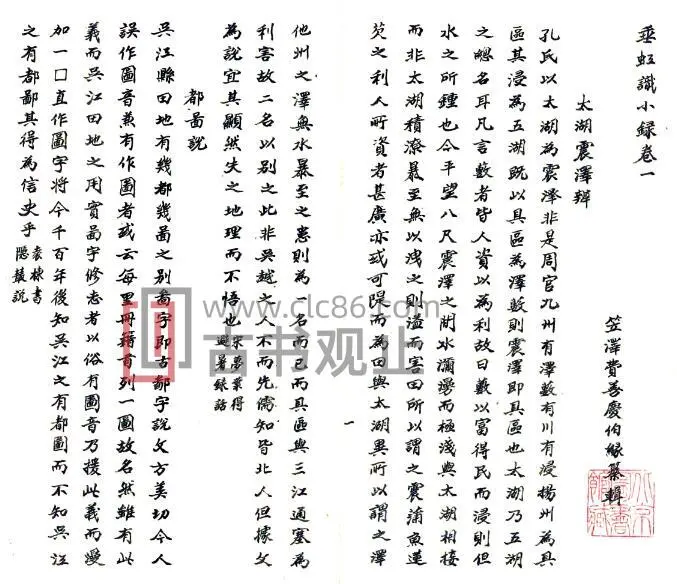 垂虹識小錄卷一
笠澤費善慶伯緣纂輯
太湖震澤辯
孔氏以太湖為震澤非是周官九州有澤藪有川有浸揚州為具
區其浸為五湖既以具區為澤藪則震澤即具區也太湖乃五湖
之總名耳凡言藪者皆人資以為利故曰藪以富得民而浸則但
水之所鍾也今平望八尺震澤之間水瀰漫而極淺與太湖相接
而非太湖積潦暴至無以洩之則溢而害田所以謂之震蒲魚蓮
芡之利人所資者甚廣亦或可隄而為田與太湖異所以謂之澤
一
他州之澤無水暴至之患則為一名而已而具區與三江通塞為
利害故二名以別之此非吳越之人不而先儒知皆北人但據文
為說宜其顯然失之地理而不悟也宋葉夢得
避暑錄話
都啚說
吳江縣田地有幾都幾啚之別啚字即古鄙字說文方美切今人
誤作圖音蕉有作圖者或云每里冊籍首列一圖故名然雖有此
義而吳江田地之用實啚字修志者以俗有圖音乃援此義而漫
加一囗直作圖字將令千百年後知吳江之有都圖而不知吳江
之有都鄙其得為信史乎袁棟書
隱叢說
www.clc86.com
古书观止